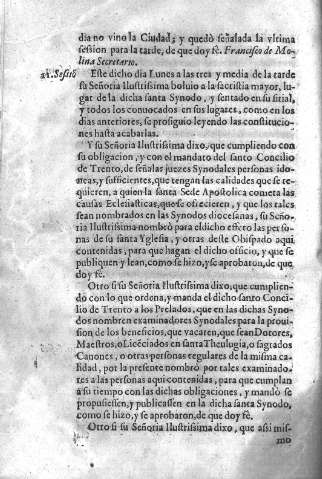 dia no vino la Ciudad; y quedò señalada la vltima
session para la tarde, de que doy fè. Francisco de Mo-
lina Secretario.
21. Sessiō Este dicho dia Lunes a las tres y media de la tarde
su Señoria Ilustrissima boluio a la sacristia mayor, lu-
gar de la dicha santa Synodo, y sentado en su sitial,
y todos los comocados en sus lugares, como en los
dias anteriores, se prosiguio leyendo las constitucio-
nes hasta acabarlas.
Y su Señoria Ilustrissima dixo, que cumpliendo con
su obligacion, y con el mandato del santo Concilio
de Trento, de señalar juezes Synodales personas ido-
neas, y suficientes, que tengan las calidades que se re-
quieren, a quien la santa Sede Apostolica cometa las
causas Eclesiasticas, que se ofrecieren, y que los tales
sean nombrados en las Synodos diocesanas, su Seño-
ria Ilustrissima nombrò para el dicho effeto las perso-
nas de su santa Yglesia, y otras deste Obispado aqui
contenidas, para que hagan el dicho officio, y que se
publiquen y lean, como se hizo, y se aprobaron, de que
doy fè.
Otro si su Señoria Ilustrissima dixo, que cumplien-
dò con lo que ordena, y manda el dicho santo Conci-
lio de Trento a los Prelados, que en las dichas Syno-
dos nombren examinadores Synodales para la prouis-
sion de los beneficios, que vacaren, que sean Dotores,
Maestros, o Licēciados en santa Theulugia, o sagrados
Canones, o otras personas regulares de la misma ca-
lidad, por la presente nombrò por tales examinado-
res a las personas aqui contenidas, para que cumplan
a su tiempo con las dichas obligaciones, y mandò se
propusiessen, y publicassen en la dicha santa Synodo,
como se hizo, y se aprobaron, de que doy fè.
Otro si su Señoria Ilustrissima dixo, que assi mis-
mo